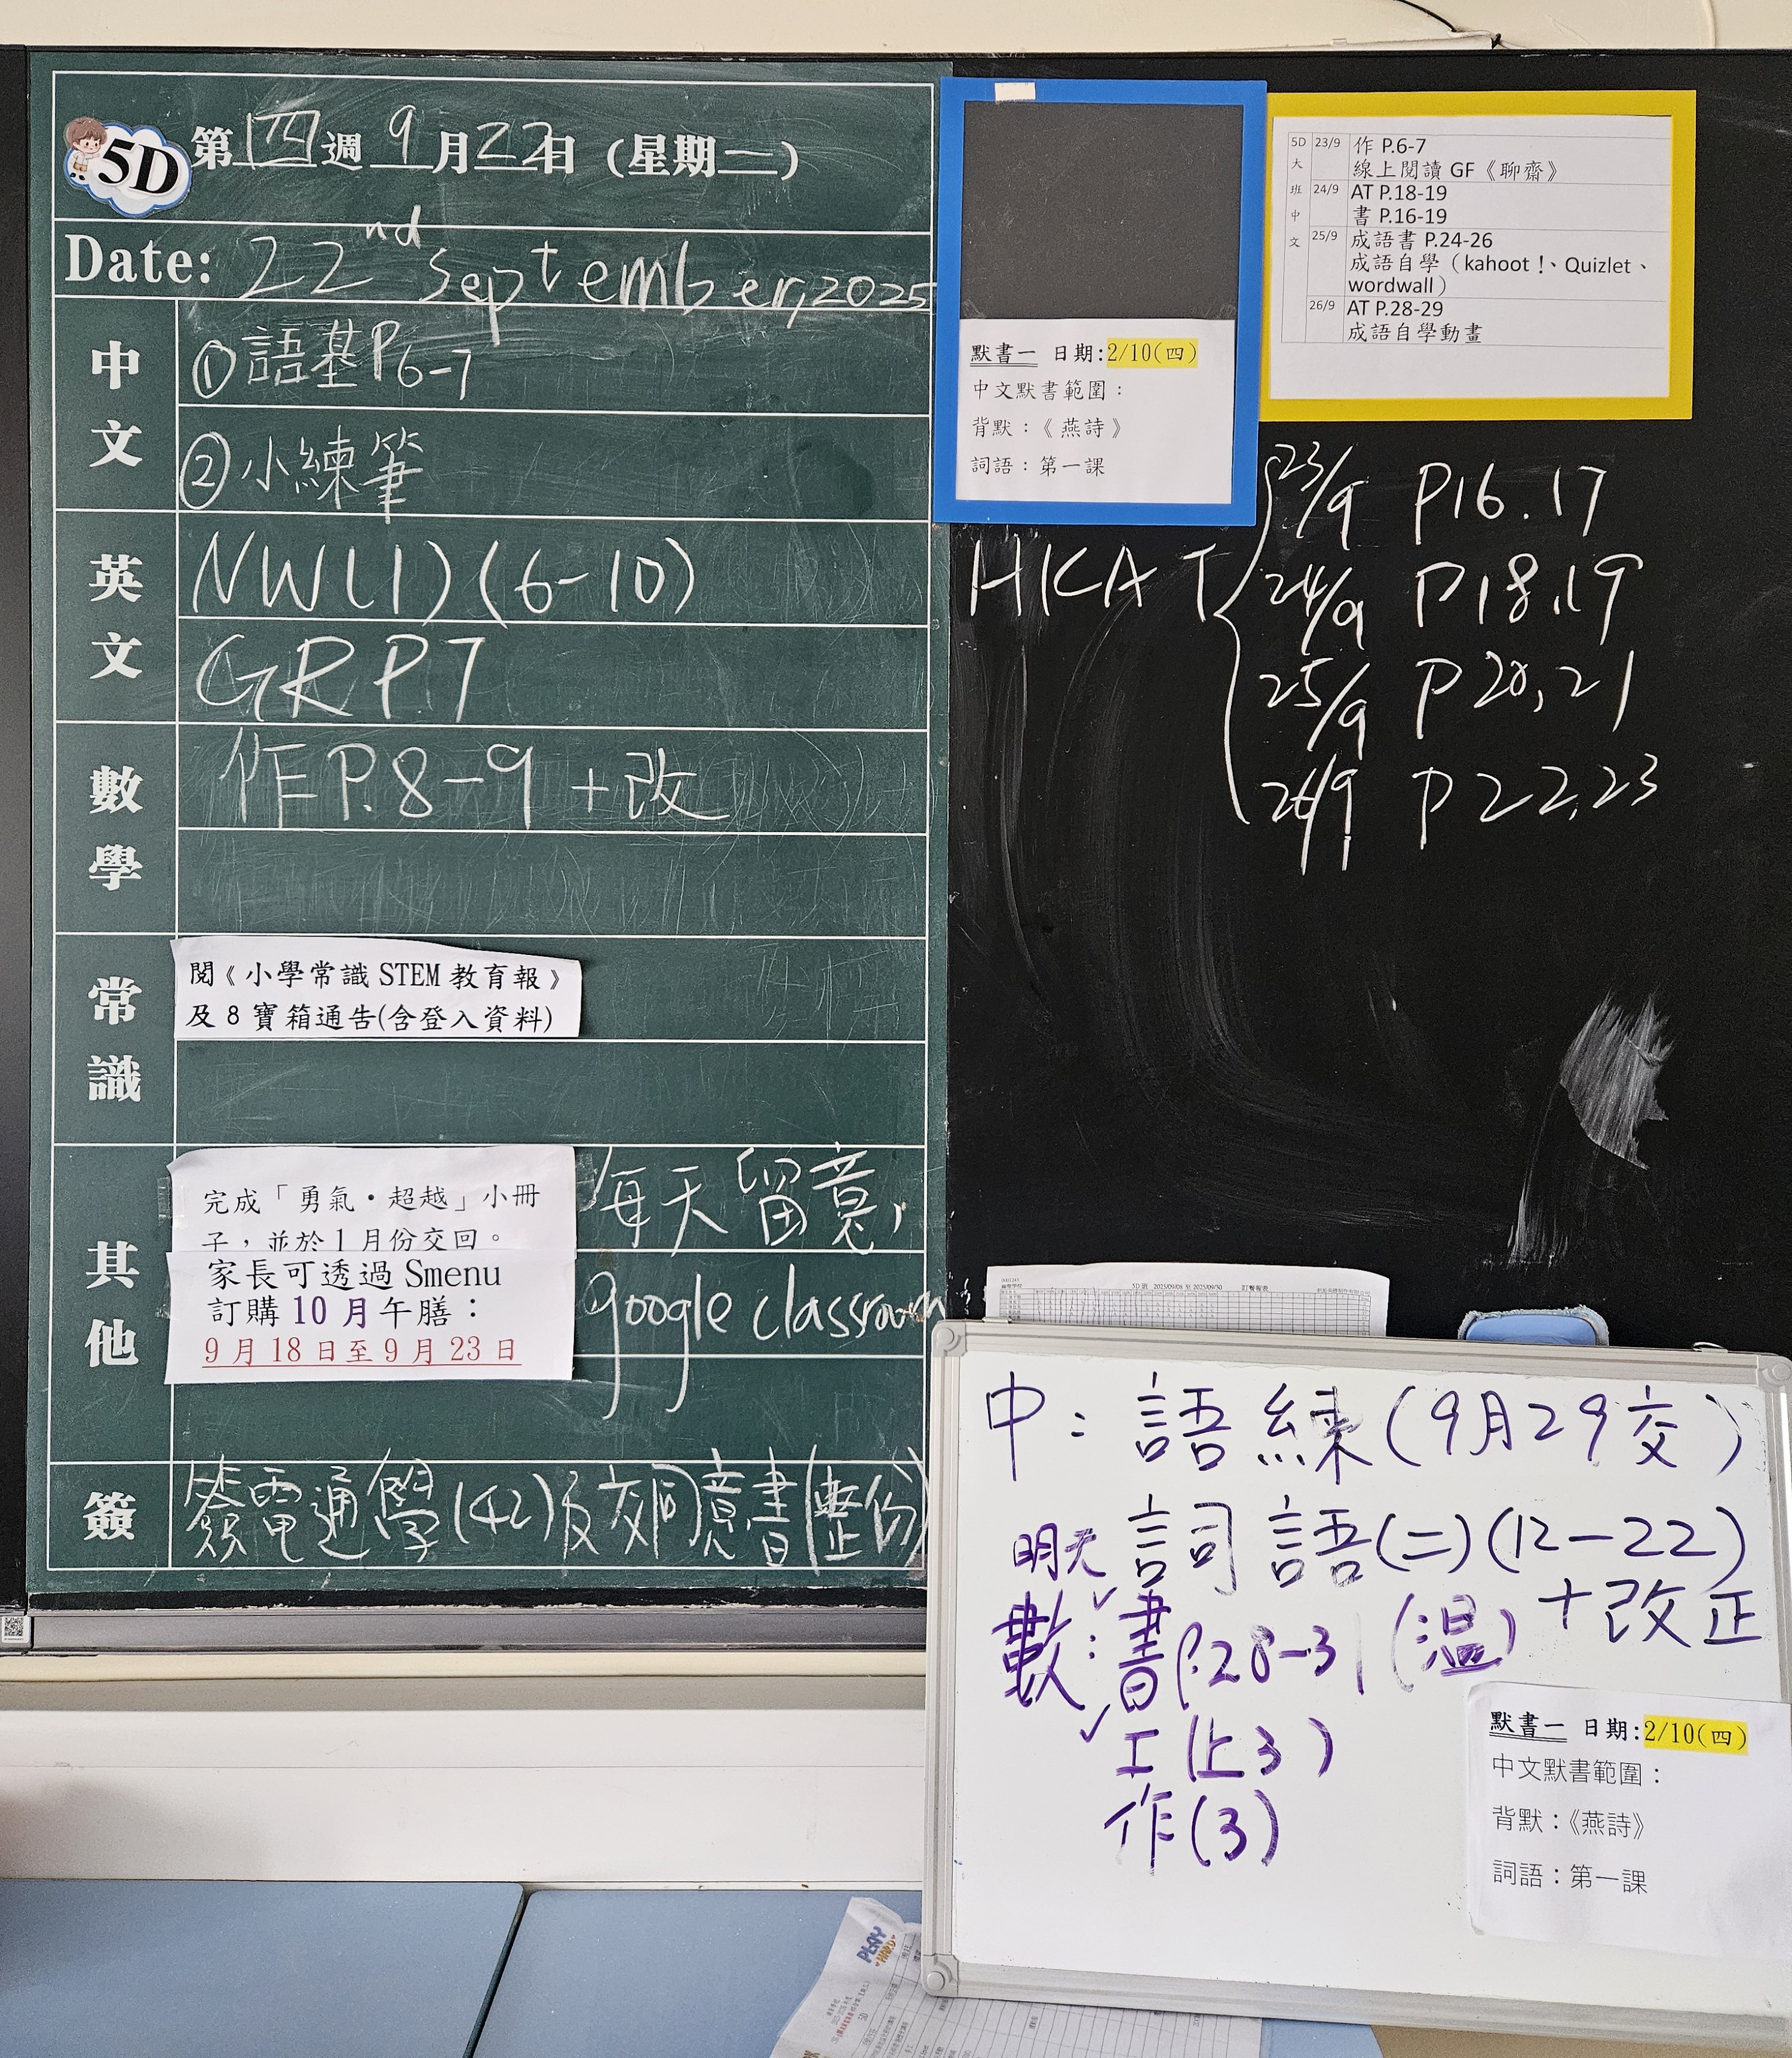 5D
第四週 9月22日 (星期一)
Date: 22nd September, 2025
中文
①語基P6-7
②小練筆
英文
NW(1)(6-10)
GR P.7
數學
作P.8-9+改
常識
閱《小學常識 STEM 教育報》
及 8 寶箱通告(含登入資料)
其他
完成「勇氣・超越」小冊
子，並於1月份交回。
家長可透過 Smenu
訂購 10 月午膳：
9 月 18 日至 9 月 23 日
每天留意,
google classroom
簽
簽電通學(42)及交同意書(整份)
默書一 日期:2/10(四)
中文默書範圍：
背默：《燕詩》
詞語：第一課
5D大班中文
23/9 作 P.6-7
線上閱讀 GF《聊齋》
24/9 AT P.18-19
書 P.16-19
25/9 成語書 P.24-26
成語自學（kahoot !、Quizlet、
wordwall）
26/9 AT P.28-29
成語自學動畫
HKAT
23/9 P16.17
24/9 P18,19
25/9 P20,21
26/9 P22,23
5D 班 2025/09/08 至 2025/09/30 訂餐報表
中：語練(9月29交)
明天 詞語(二)(12-22)
+改正
數：書P.28-31(溫)
工(上3)
作(3)
默書一 日期:2/10(四)
中文默書範圍：
背默：《燕詩》
詞語：第一課
PLAY
HARD